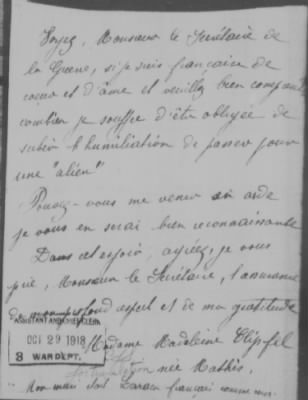 Voyez, Monsieur le Secrétaire de
la Guerre, si je suis française de
coeur et d'âme et veuillez bien comprendre
combien je souffre d'être obligée de
subir l'humiliation de passer pour
une "alien"
Pouvez-vous me venir en aide
je vous en serai bien reconnaissante
Dans cet espoir, agréez, je vous
prie, Monsieur le Secrétaire, l'assurance
de mon profond respect et de ma gratitude
ASSISTANT AND CHIEF CLERK
OCT 29 1918
8 WAR DEPT.
Madame Madeleine
née Mathis.
Mon mari français comme moi